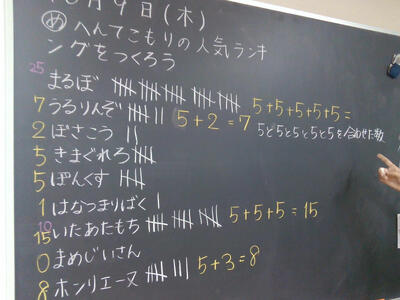 10月9日(木)
め へんてこもりの人気ランキ
ングをつくろう
25 まるぼ 5+5+5+5+5=
7 うるりんぞ 5+2=7 5と5と5と5と5を合わせた数
2 ぼさこう
5 きまぐれろ
5 ぽんくす
1 はなつまりばく
10
15 いたあたもち 5+5+5=15
0 まめじいさん
8 ホンリエーヌ 5+3=8